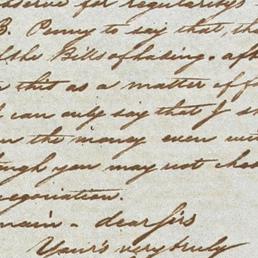 for regularity's
B. Penny to say that tha
the Bills of lading. afte
this as a matter of f
can only say that I s
the money even wit
though you may not cha
negociation.
main - dear Sirs
Your's very truly